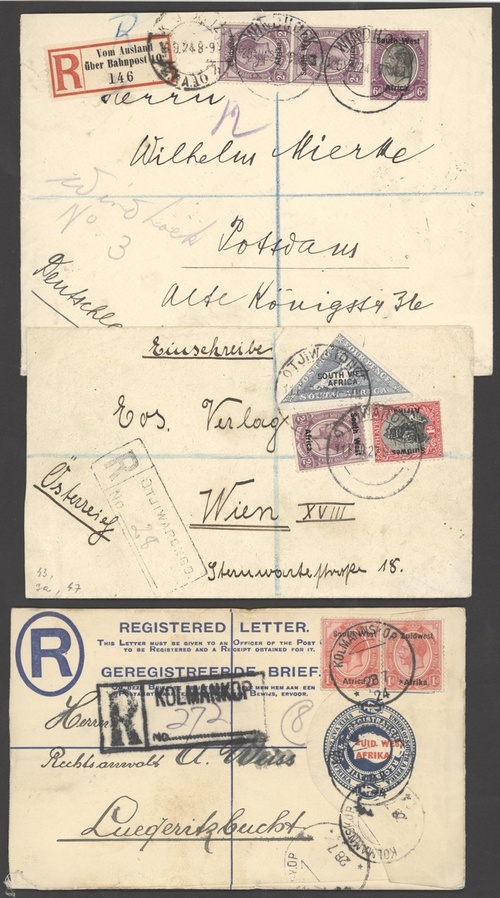 Vom Ausland
über Bahnpost 10
R 146
WINDHUK
South West
Africa
6d 6d
Herrn
12
Wilhelm Mierke
Windhoek
No. 3
Potsdam
Alte Königstr 36
Einschreibe
OTJIWARONGO
SOUTH WEST
AFRICA
Eos Verlag
South West
Africa
Suidwes
Afrika
Österreich
R
No. 28
OTJIWARONGO
Wien XVIII
Sternwartestrasse 18.
R
REGISTERED LETTER.
THIS LETTER MUST BE GIVEN TO AN OFFICER OF THE POST
TO BE REGISTERED AND A RECEIPT OBTAINED FOR IT.
GEREGISTREERDE BRIEF.
South West Zuidwest
Africa Afrika
KOLMANSKOP
28 7
24
R
KOLMANKOP
No. 272
8
Herrn
Rechtsanwalt A. Weiss
ZUID. WEST
AFRIKA.
Luederitzbucht
KOLMANSKOP
28 7